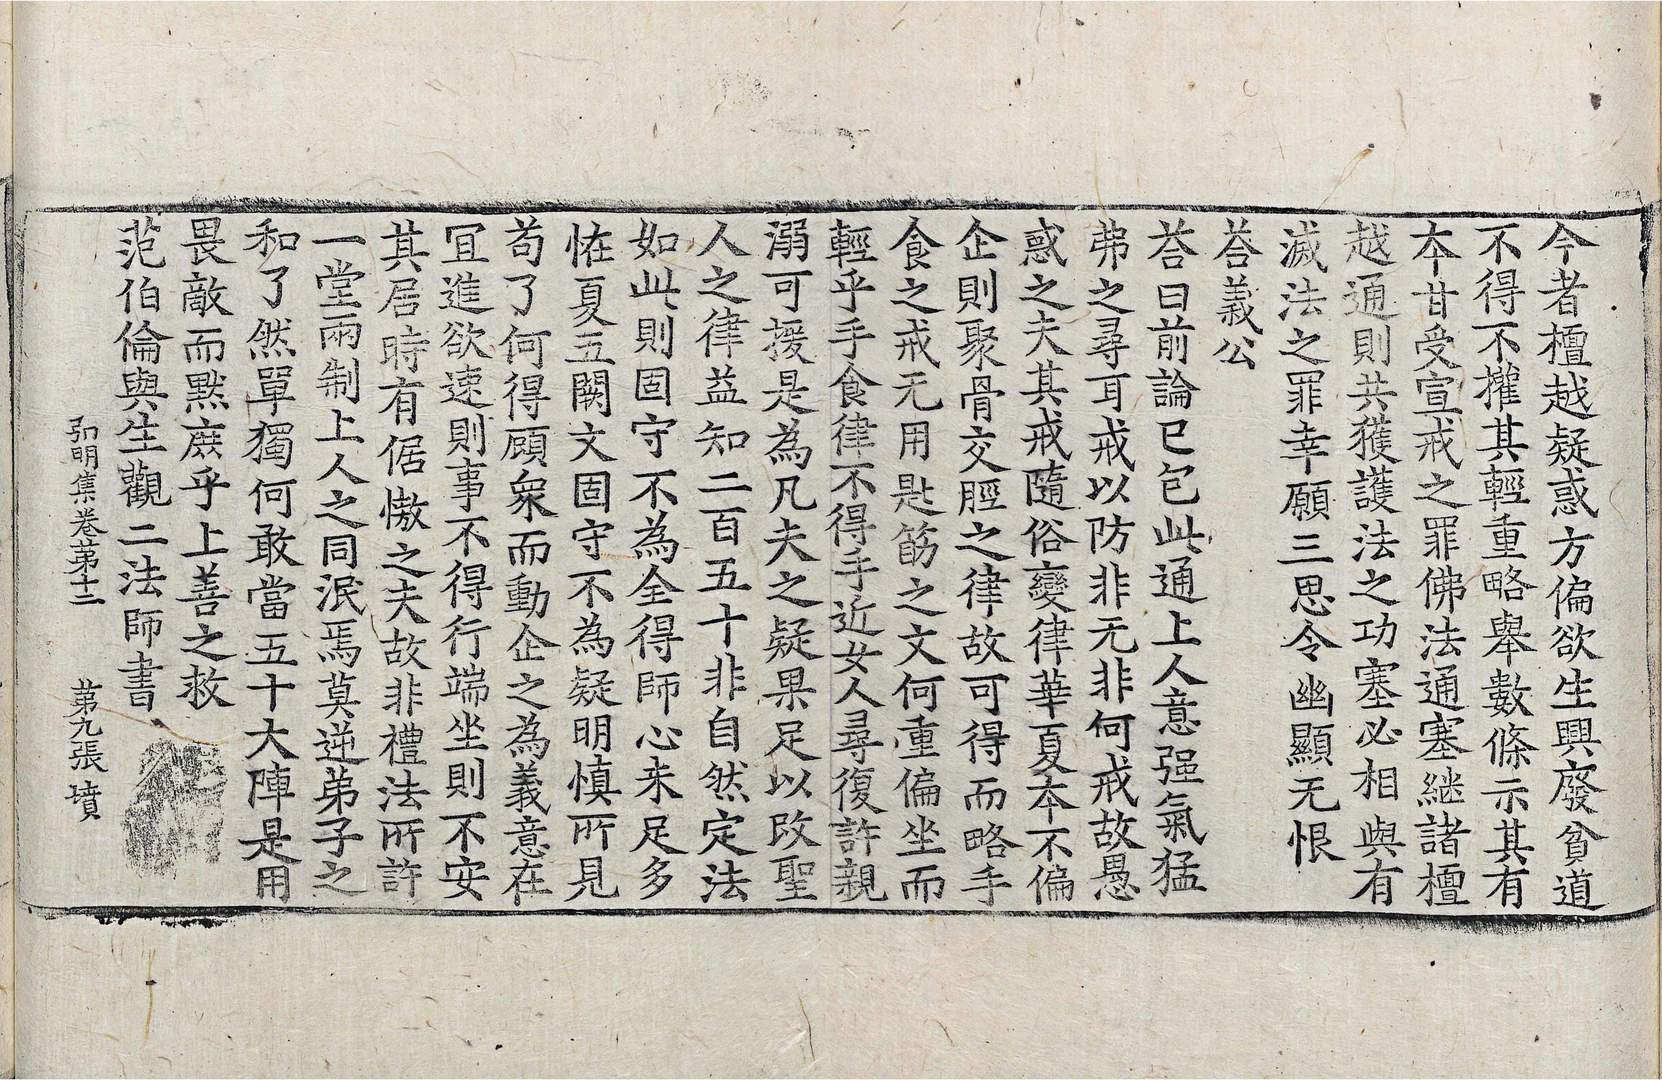 今者檀越疑惑方偏欲生興廢貧道
不得不權其輕重略舉數條示其有
本甘受宣戒之罪佛法通塞継諸檀
越通則共獲護法之功塞必相與有
滅法之罪幸願三思令幽顯无恨
荅義公
荅曰前論已包此通上人意强氣猛
弗之尋耳戒以防非无非何戒故愚
惑之夫其戒隨俗變律華夏本不偏
企則聚骨交脛之律故可得而略手
食之戒无用匙筯之文何重偏坐而
輕乎手食律不得手近女人尋復許親
溺可援是為凡夫之疑果足以改聖
人之律益知二百五十非自然定法
如此則固守不為全得師心未足多
恠夏五闕文固守不為疑明慎所見
苟了何得顧衆而動企之為義意在
冝進欲速則事不得行端坐則不安
其居時有倨慠之夫故非禮法所許
一堂兩制上人之同泯焉莫逆弟子之
和了然單獨何敢當五十大陣是用
畏敵而黙庶乎上善之救
范伯倫與生觀二法師書
弘明集卷第十二 第九張 墳